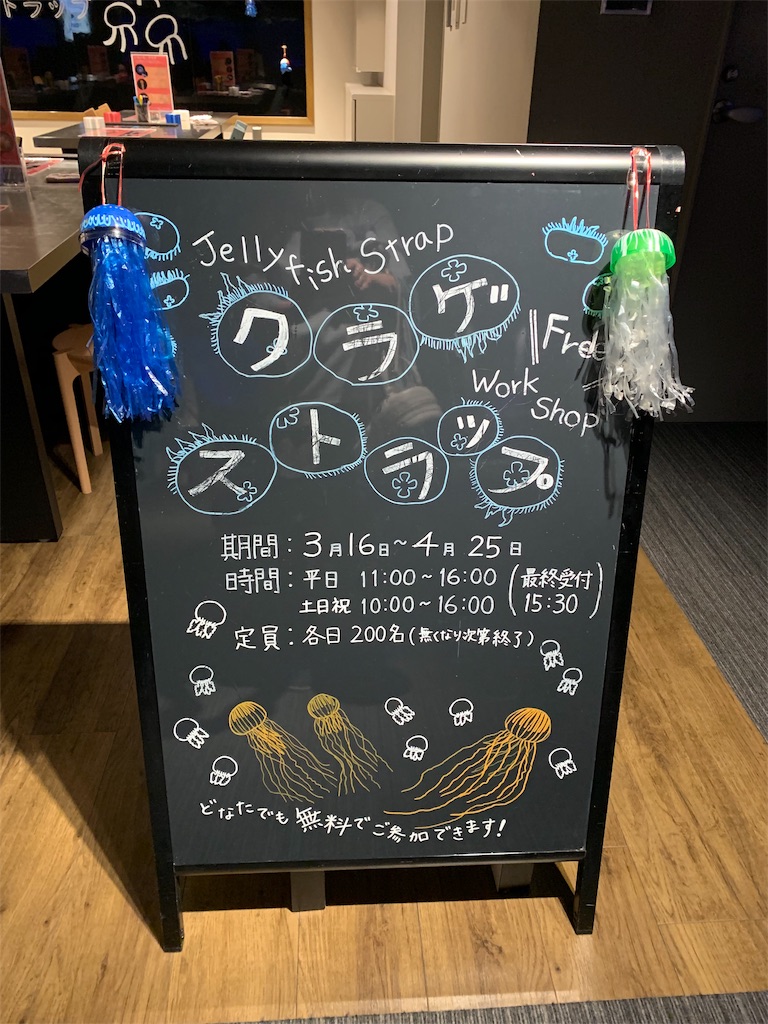 トラップ
Jellyfish Strap
クラゲ
Free
Work
Shop
ストラップ
期間：3月16日～4月25日
時間：平日 11:00～16:00（最終受付
土日祝 10:00～16:00 15:30）
定員：各日200名（無くなり次第終了）
どなたでも無料でご参加できます！